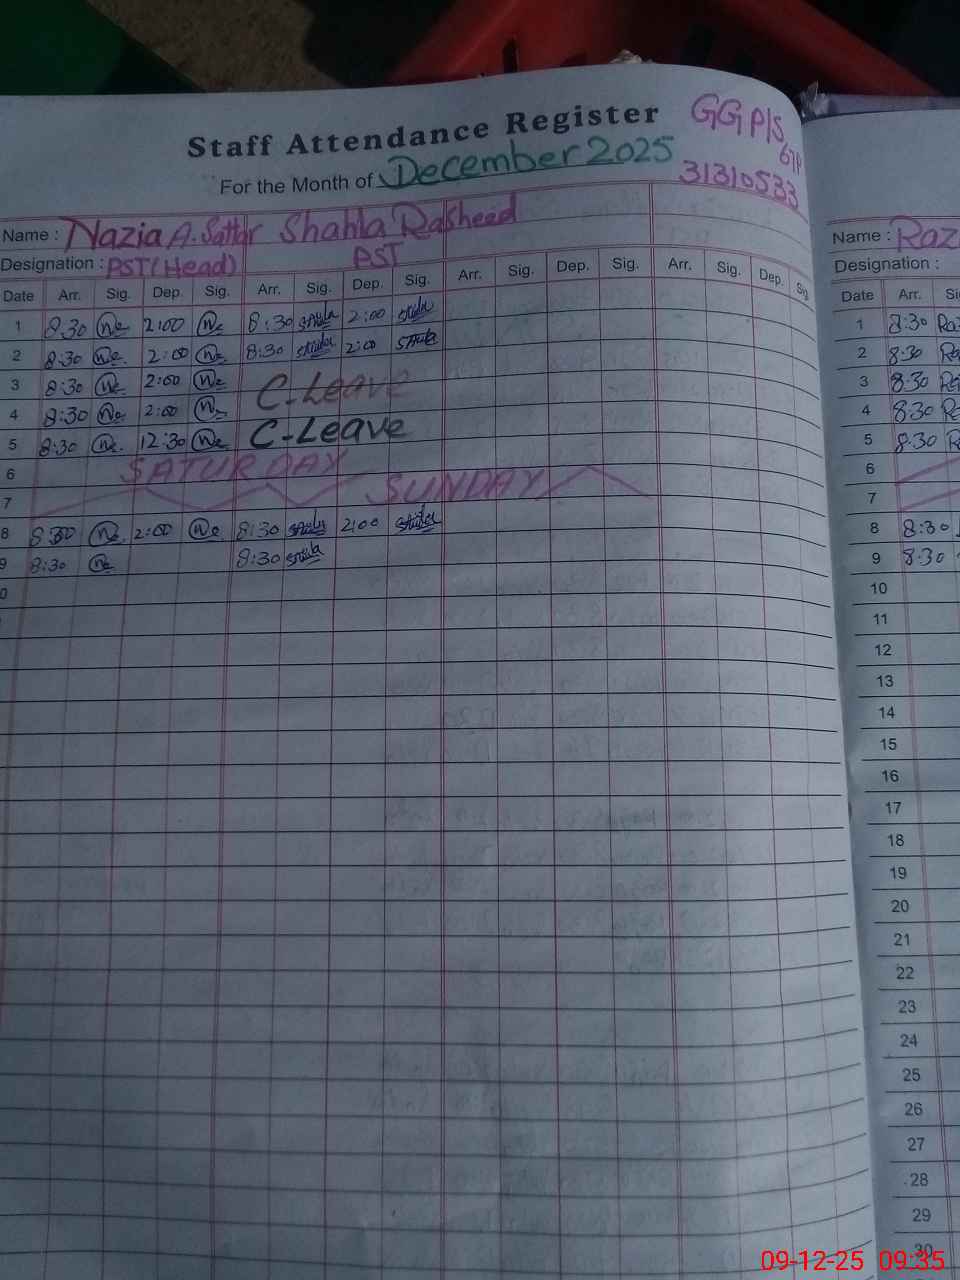 Staff Attendance Register
GGP/S
67P
For the Month of December 2025
31310533
Name : Nazia A. Sattar Shahla Rasheed
Designation : PST (Head) PST
Date Arr. Sig. Dep. Sig. Arr. Sig. Dep. Sig. Arr. Sig. Dep. Sig. Arr. Sig. Dep. Sig
1 8:30 2:00 8:30 2:00
2 8:30 2:00 8:30 2:00
3 8:30 2:00 C-Leave
4 8:30 2:00
5 8:30 12:30 C-Leave
6 SATURDAY
7 SUNDAY
8 8:30 2:00 8:30 2:00
9 8:30 8:30
0
Name : Raz
Designation :
Date Arr. Si
1 8:30
2 8:30
3 8:30
4 8:30
5 8:30
6
7
8 8:30
9 8:30
10
11
12
13
14
15
16
17
18
19
20
21
22
23
24
25
26
27
28
29
30
09-12-25 09:35